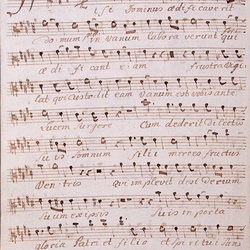 Nisi Dominus aedificaverit
domum in vanum laboraverunt qui
aedificant eam frustra vigi
lat qui custodit eam Vanum est vobis ante
lucem surgere Cum dederit dilectis
suis somnum filii merces fructus
Ventris Qui implevit desiderium
suum ex ipsis in porta
gloria Patri et filio et spiritui san